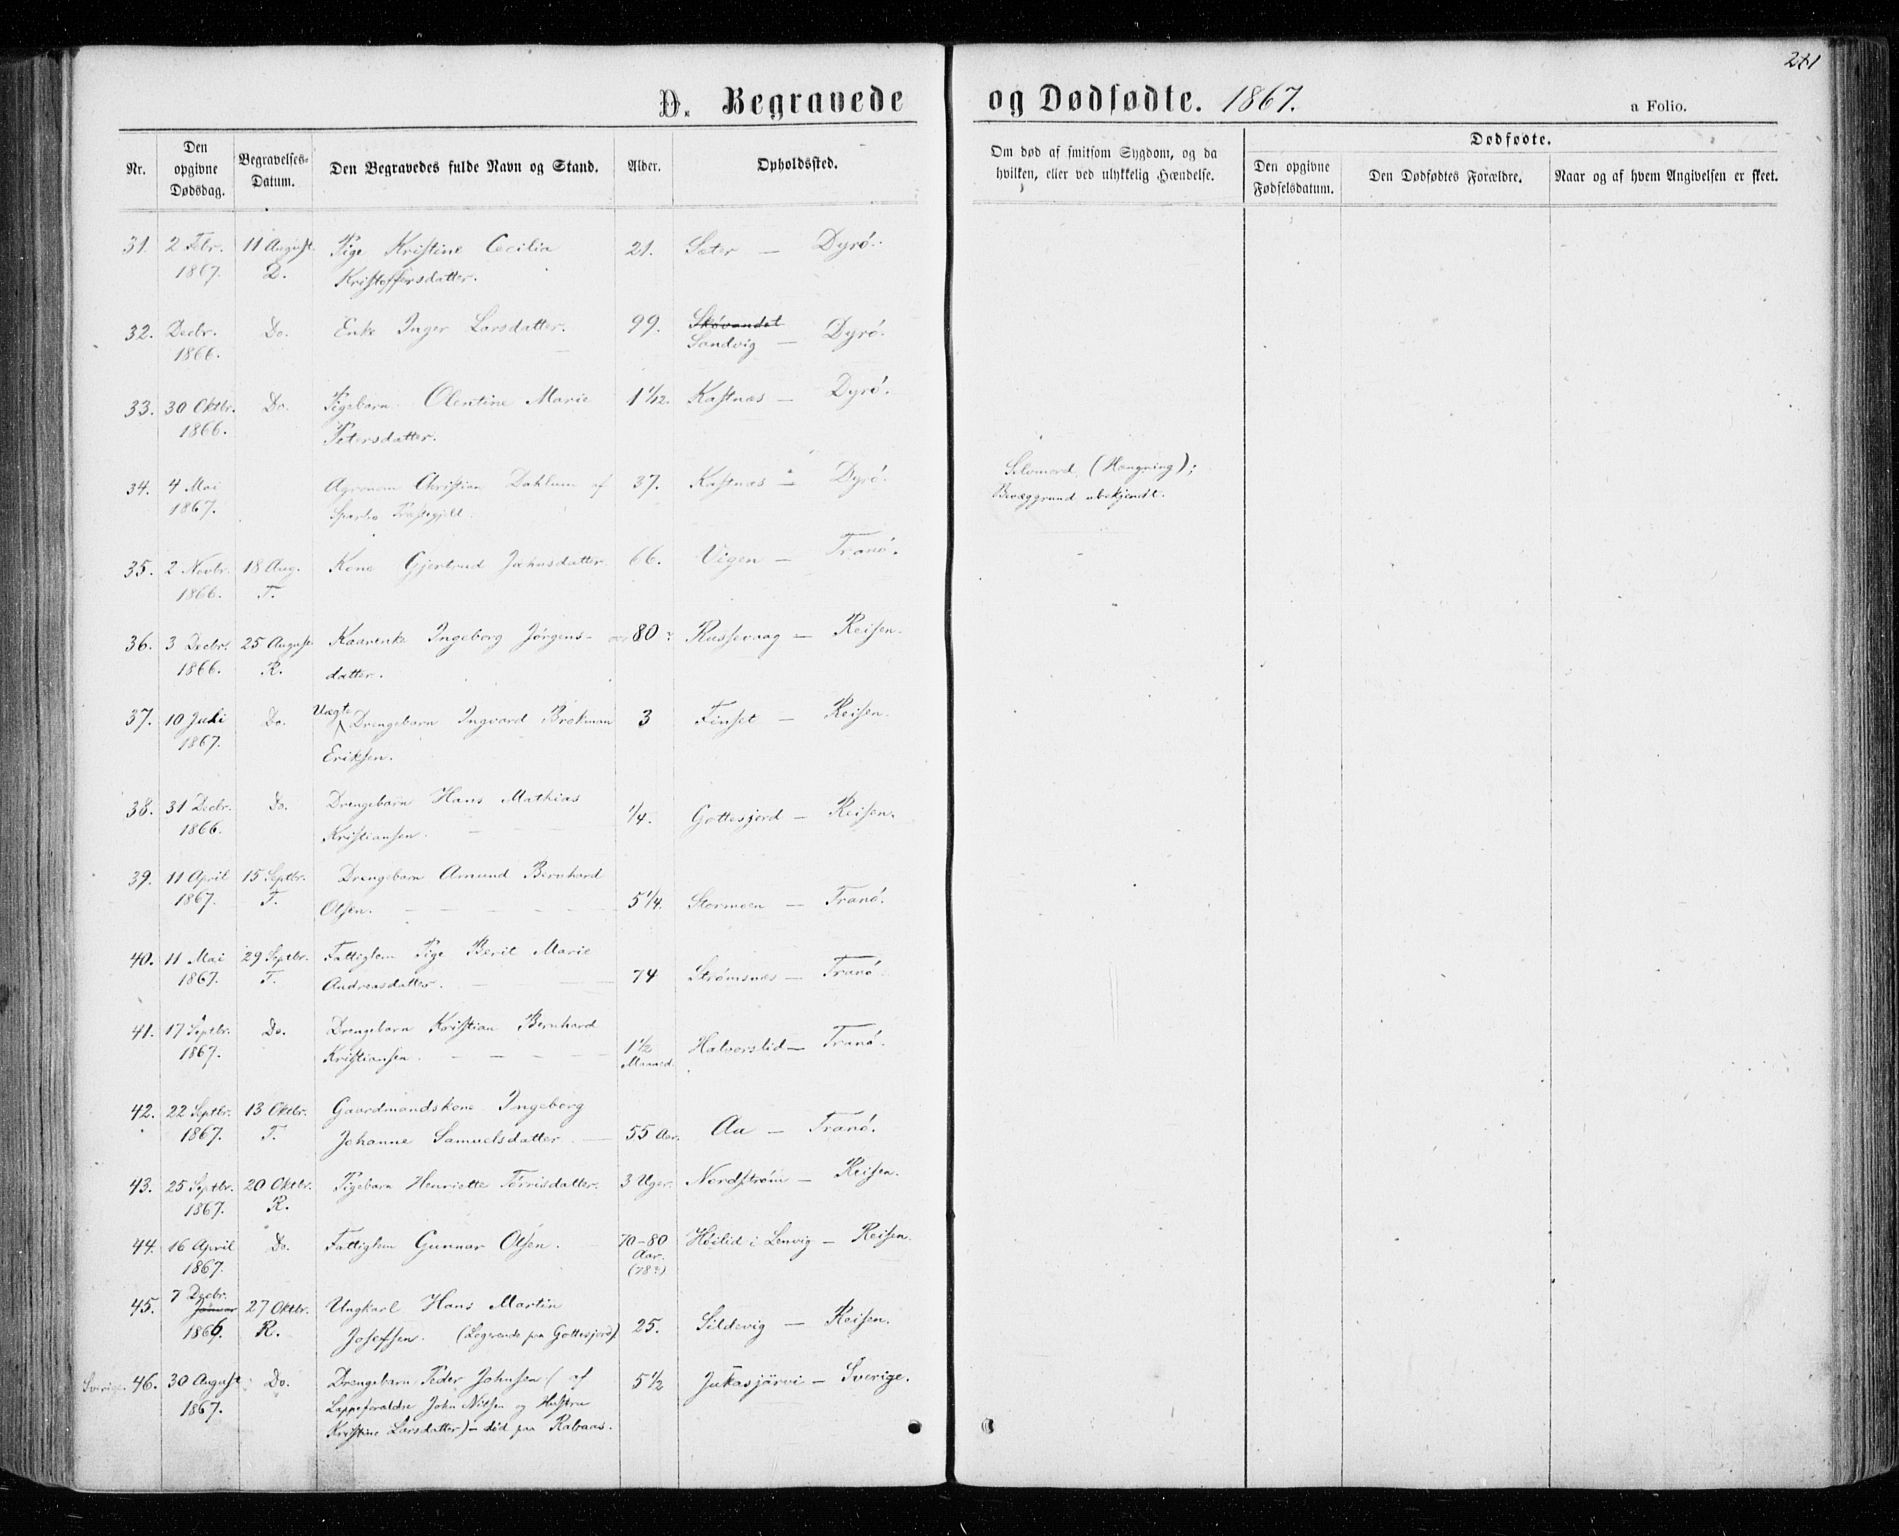 211
D. Begravede og Dødfødte. 1867. a Folio.
Nr. Den opgivne Dødsdag. Begravelses-Datum. Den Begravedes fulde Navn og Stand. Alder. Opholdssted. Om død af smitsom Sygdom, og da hvilken, eller ved ulykkelig Hændelse. Dødfødte.
Den opgivne Fødselsdatum. Den Dødfødtes Forældre. Naar og af hvem Angivelsen er skeet.
31. 2 Febr. 11 August Pige Kristine Cecilia 21. Sæter — Dyrö.
1867. D. Kristoffersdatter.
32. Decbr. Do. Enke Inger Larsdatter. 99. Skövandet
1866. Sandvig — Dyrö.
33. 30 Oktbr. Do. Pigebarn Olentine Marie 1 1/12. Kastnæs — Dyrö.
1866. Petersdatter.
34. 4 Mai Agronom Christian Dahlum af 37. Kastnæs — Dyrö. Selvmord (Hængning);
1867. Sparbo Præstegjeld. Bevæggrund ubekjendt.
35. 2 Novbr. 18 Aug. Kone Gjertrud Jakusdatter 66. Vigen — Tranö.
1866. T.
36. 3 Decbr. 25 August Kaarenke Ingeborg Jörgens- 80 Russevaag — Reisen.
1866. R. datter.
37. 10 Juli Do. Uægte Drengebarn Ingvard Brokman 3 Finset — Reisen.
1867. Eriksen.
38. 31 Decbr. Do. Drengebarn Hans Mathias 1/4. Gottesjord — Reisen.
1866. Kristiansen.
39. 11 April 15 Septbr. Drengebarn Amund Bernhard
1867. T. Olsen. 5 1/4. Stormoen — Tranö.
40. 11 Mai 29 Septbr. Fattiglem Pige Berit Marie
1867. T. Andreasdatter. 74 Strömsnæs — Tranö.
41. 17 Septbr. Do. Drengebarn Kristian Bernhard
1867. Kristiansen. 1 1/2 Maaned. Halvorslid — Tranö.
42. 22 Septbr. 13 Oktbr. Gaardmandskone Ingeborg
1867. T. Johanne Samuelsdatter. 55 Aar. Aa — Tranö.
43. 25 Septbr. 20 Oktbr. Pigebarn Henriette Törrisdatter. 3 Uger. Nordström — Reisen.
1867. R.
44. 16 April Do. Fattiglem Gunnar Olsen. 70–80 Höilid i Lenvig — Reisen.
1867. Aar. (78?)
45. 7 Decbr. Januar 27 Oktbr. Ungkarl Hans Martin
1866. R. Josefsen. (Logerende paa Gottesjord) 25. Sildevig — Reisen.
Sverige. 46. 30 August Do. Drengebarn Peder Johnsen (af 5 1/2 Jukasjärvi — Sverige.
1867. Lappeforældre John Nilsen og Hustru
Kristine Larsdatter) – död paa Rabaas.